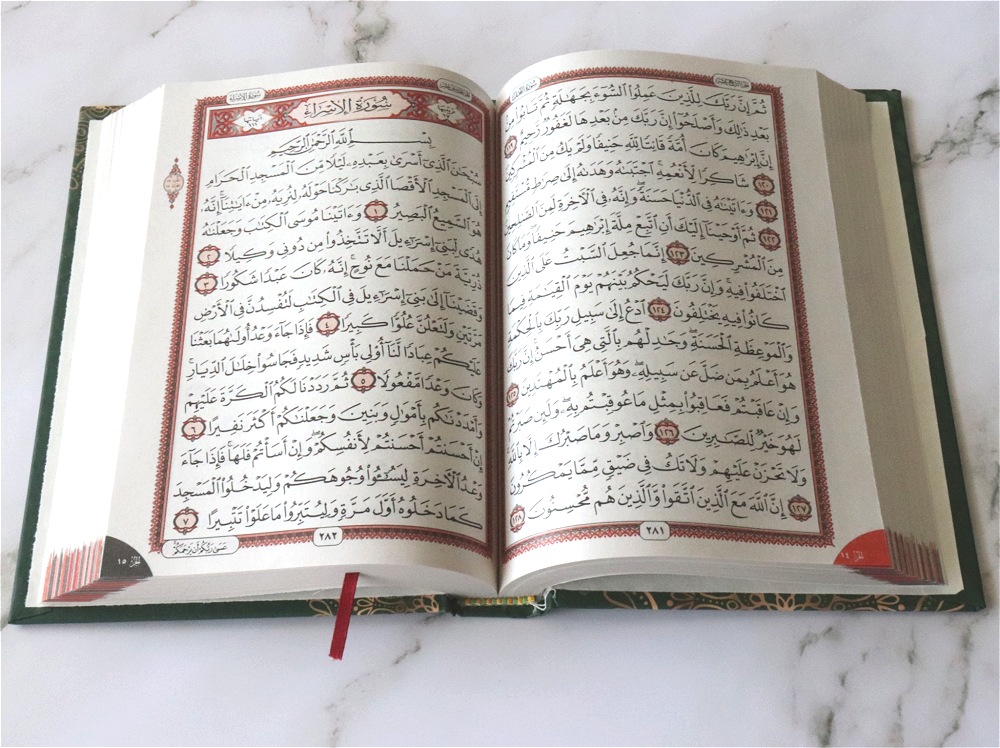 سُورَةُ النَّحْلِ
ثُمَّ إِنَّ رَبَّكَ لِلَّذِينَ عَمِلُوا۟ ٱلسُّوٓءَ بِجَهَـٰلَةٍ ثُمَّ تَابُوا۟ مِنۢ
بَعْدِ ذَٰلِكَ وَأَصْلَحُوٓا۟ إِنَّ رَبَّكَ مِنۢ بَعْدِهَا لَغَفُورٌ رَّحِيمٌ ١١٩
إِنَّ إِبْرَٰهِيمَ كَانَ أُمَّةً قَانِتًا لِّلَّهِ حَنِيفًا وَلَمْ يَكُ مِنَ ٱلْمُشْرِكِينَ
١٢٠ شَاكِرًا لِّأَنْعُمِهِ ۚ ٱجْتَبَىٰهُ وَهَدَىٰهُ إِلَىٰ صِرَٰطٍ مُّسْتَقِيمٍ
١٢١ وَءَاتَيْنَـٰهُ فِى ٱلدُّنْيَا حَسَنَةً ۖ وَإِنَّهُۥ فِى ٱلْـَٔاخِرَةِ لَمِنَ ٱلصَّـٰلِحِينَ
١٢٢ ثُمَّ أَوْحَيْنَآ إِلَيْكَ أَنِ ٱتَّبِعْ مِلَّةَ إِبْرَٰهِيمَ حَنِيفًا ۖ وَمَا كَانَ
مِنَ ٱلْمُشْرِكِينَ ١٢٣ إِنَّمَا جُعِلَ ٱلسَّبْتُ عَلَى ٱلَّذِينَ
ٱخْتَلَفُوا۟ فِيهِ ۚ وَإِنَّ رَبَّكَ لَيَحْكُمُ بَيْنَهُمْ يَوْمَ ٱلْقِيَـٰمَةِ فِيمَا
كَانُوا۟ فِيهِ يَخْتَلِفُونَ ١٢٤ ٱدْعُ إِلَىٰ سَبِيلِ رَبِّكَ بِٱلْحِكْمَةِ
وَٱلْمَوْعِظَةِ ٱلْحَسَنَةِ ۖ وَجَـٰدِلْهُم بِٱلَّتِى هِىَ أَحْسَنُ ۚ إِنَّ رَبَّكَ
هُوَ أَعْلَمُ بِمَن ضَلَّ عَن سَبِيلِهِۦ ۖ وَهُوَ أَعْلَمُ بِٱلْمُهْتَدِينَ ١٢٥
وَإِنْ عَاقَبْتُمْ فَعَاقِبُوا۟ بِمِثْلِ مَا عُوقِبْتُم بِهِۦ ۖ وَلَئِن صَبَرْتُمْ
لَهُوَ خَيْرٌ لِّلصَّـٰبِرِينَ ١٢٦ وَٱصْبِرْ وَمَا صَبْرُكَ إِلَّا بِٱللَّهِ ۚ
وَلَا تَحْزَنْ عَلَيْهِمْ وَلَا تَكُ فِى ضَيْقٍ مِّمَّا يَمْكُرُونَ
١٢٧ إِنَّ ٱللَّهَ مَعَ ٱلَّذِينَ ٱتَّقَوا۟ وَّٱلَّذِينَ هُم مُّحْسِنُونَ ١٢٨
٢٨١
الجزء ١٤
سُورَةُ الإِسْرَاءِ
سُورَةُ الإِسْرَاءِ
بِسْمِ ٱللَّهِ ٱلرَّحْمَـٰنِ ٱلرَّحِيمِ
سُبْحَـٰنَ ٱلَّذِىٓ أَسْرَىٰ بِعَبْدِهِۦ لَيْلًا مِّنَ ٱلْمَسْجِدِ ٱلْحَرَامِ
إِلَى ٱلْمَسْجِدِ ٱلْأَقْصَا ٱلَّذِى بَـٰرَكْنَا حَوْلَهُۥ لِنُرِيَهُۥ مِنْ ءَايَـٰتِنَآ ۚ إِنَّهُۥ
هُوَ ٱلسَّمِيعُ ٱلْبَصِيرُ ١ وَءَاتَيْنَا مُوسَى ٱلْكِتَـٰبَ وَجَعَلْنَـٰهُ
هُدًى لِّبَنِىٓ إِسْرَٰٓءِيلَ أَلَّا تَتَّخِذُوا۟ مِن دُونِى وَكِيلًا ٢
ذُرِّيَّةَ مَنْ حَمَلْنَا مَعَ نُوحٍ ۚ إِنَّهُۥ كَانَ عَبْدًا شَكُورًا ٣
وَقَضَيْنَآ إِلَىٰ بَنِىٓ إِسْرَٰٓءِيلَ فِى ٱلْكِتَـٰبِ لَتُفْسِدُنَّ فِى ٱلْأَرْضِ
مَرَّتَيْنِ وَلَتَعْلُنَّ عُلُوًّا كَبِيرًا ٤ فَإِذَا جَآءَ وَعْدُ أُولَىٰهُمَا بَعَثْنَا
عَلَيْكُمْ عِبَادًا لَّنَآ أُو۟لِى بَأْسٍ شَدِيدٍ فَجَاسُوا۟ خِلَـٰلَ ٱلدِّيَارِ ۚ
وَكَانَ وَعْدًا مَّفْعُولًا ٥ ثُمَّ رَدَدْنَا لَكُمُ ٱلْكَرَّةَ عَلَيْهِمْ
وَأَمْدَدْنَـٰكُم بِأَمْوَٰلٍ وَبَنِينَ وَجَعَلْنَـٰكُمْ أَكْثَرَ نَفِيرًا ٦
إِنْ أَحْسَنتُمْ أَحْسَنتُمْ لِأَنفُسِكُمْ ۖ وَإِنْ أَسَأْتُمْ فَلَهَا ۚ فَإِذَا جَآءَ
وَعْدُ ٱلْـَٔاخِرَةِ لِيَسُـۥٓـُٔوا۟ وُجُوهَكُمْ وَلِيَدْخُلُوا۟ ٱلْمَسْجِدَ
كَمَا دَخَلُوهُ أَوَّلَ مَرَّةٍ وَلِيُتَبِّرُوا۟ مَا عَلَوْا۟ تَتْبِيرًا ٧
٢٨٢
عَسَىٰ رَبُّكُمْ أَن يَرْحَمَكُمْ
الجزء ١٥